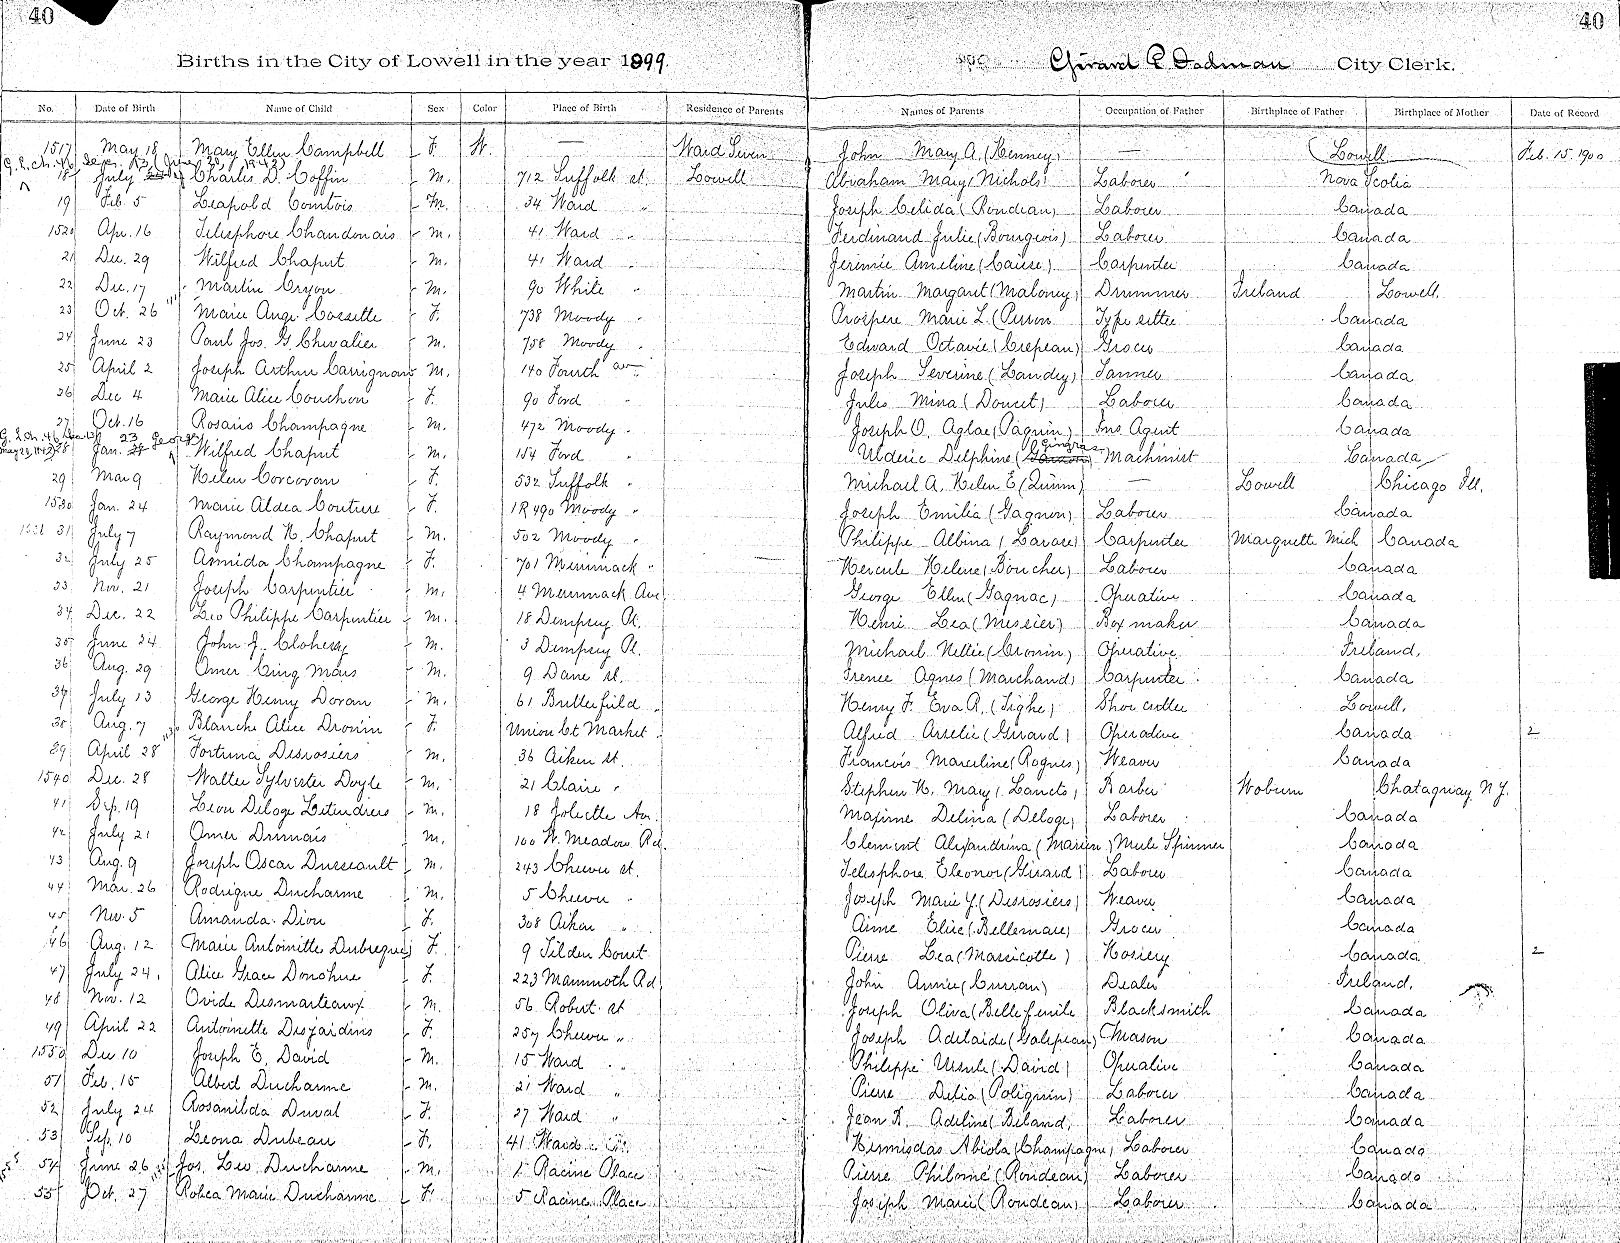 40
40
Births in the City of Lowell in the year 1899.
Girard P. Dadman City Clerk.
No. Date of Birth Name of Child Sex Color Place of Birth Residence of Parents Names of Parents Occupation of Father Birthplace of Father Birthplace of Mother Date of Record
1517 May 18 Mary Ellen Campbell F. W. — Ward Seven John Mary A. (Kenney) — Lowell Feb. 15. 1900
G. L. Ch. 46 Sec. 13 (June 30, 1942)
18 July Charles D. Coffin M. 712 Suffolk st. Lowell Abraham Mary (Nichols) Laborer Nova Scotia
19 Feb. 5 Leapold Comtois M. 34 Ward " Joseph Celida (Rondeau) Laborer Canada
1520 Apr. 16 Telesphore Chandonais M. 41 Ward " Ferdinand Julie (Bourgeois) Laborer Canada
21 Dec. 29 Wilfred Chaput M. 41 Ward " Jerimie Ameline (Cause) Carpenter Canada
22 Dec. 17 Martin Cryon M. 90 White " Martin Margaret (Maloney) Drummer Ireland Lowell.
23 Oct. 26 Marie Ange Cossette F. 738 Moody " Prospere Marie L. (Perron Type setter Canada
24 June 23 Paul Jos. G. Chevalier M. 758 Moody " Edward Octavie (Crepeau) Grocer Canada
25 April 2 Joseph Arthur Carrignan M. 140 Fourth av " Joseph Severine (Landry) Tanner Canada
26 Dec 4 Marie Alice Couchon F. 90 Ford " Jules Mina (Doucet) Laborer Canada
27 Oct. 16 Rosario Champagne M. 472 Moody " Joseph O. Aglae (Paquin) Ins Agent Canada
G. L. Ch. 46, Sec. 13 23 George Gingras
May 28, 1942 28 Jan. Wilfred Chaput M. 154 Ford " Ulderic Delphine Machinist Canada
29 Mar 9 Helen Corcoran F. 532 Suffolk " Michael A. Helen E (Quinn) — Lowell Chicago Ill.
1530 Jan. 24 Marie Aldea Couture F. 1R 490 Moody " Joseph Emilia (Gagnon) Laborer Canada
31 July 7 Raymond H. Chaput M. 502 Moody " Philippe Albina (Lavare) Carpenter Marquette Mich Canada
32 July 25 Armida Champagne F. 701 Merrimack " Hercule Helene (Boucher) Laborer Canada
33 Nov. 21 Joseph Carpentier M. 4 Merrimack Ave George Ellen (Gagnac) Operative Canada
34 Dec. 22 Leo Philippe Carpentier M. 18 Dempsey Pl. Henri Lea (Messier) Box maker Canada
35 June 24 John J. Clohessy M. 3 Dempsey Pl. Michael Nellie (Cronin) Operative Ireland.
36 Aug. 29 Omer Cinq Mars M. 9 Dane st. Irenee Agnes (Marchand) Carpenter Canada
37 July 13 George Henry Doran M. 61 Butterfield " Henry F. Eva A. (Tighe) Shoe cutter Lowell.
38 Aug. 7 Blanche Alice Drouin F. Union Ct Market " Alfred Arselie (Girard) Operative Canada 2
39 April 28 Fortuna Desrosiers M. 36 Aiken st. Francois Marceline (Rognes) Weaver Canada
1540 Dec. 28 Walter Sylvester Doyle M. 21 Claire " Stephen H. Mary (Lancto) Barber Woburn Chataguay N.Y.
41 Sep. 19 Leon Deloge Letendres M. 18 Joliette Av. Maxime Delina (Deloge) Laborer Canada
42 July 21 Omer Dumais M. 100 W. Meadow Rd. Clement Alexandrina (Marien) Mule Spinner Canada
43 Aug. 9 Joseph Oscar Dusseault M. 243 Cheever st. Telesphore Eleonor (Girard) Laborer Canada
44 Mar. 26 Rodrique Ducharme M. 5 Cheever " Joseph Marie Y. (Desrosiers) Weaver Canada
45 Nov. 5 Amanda Dion F. 308 Aiken " Aime Elise (Bellemare) Grocer Canada
46 Aug. 12 Marie Antoinette Dubreque F. 9 Tilden Court Pierre Lea (Marcicotte) Hosiery Canada 2
47 July 24. Alice Grace Donohue F. 223 Mammoth Rd John Annie (Curran) Dealer Ireland.
48 Nov. 12 Ovide Desmarteaux M. 56 Robert st Joseph Oliva (Bellefeuille Blacksmith Canada
49 April 22 Antoinette Desjardins F. 257 Cheever " Joseph Adelaide (Galepeau) Mason Canada
1550 Dec 10 Joseph E. David M. 15 Ward " Philippe Ursule (David) Operative Canada
51 Feb. 15 Albert Ducharme M. 21 Ward " Pierre Delia (Poliquin) Laborer Canada
52 July 24 Rosanilda Duval F. 27 Ward " Jean B. Adeline (Beland, Laborer Canada
53 Sep. 10 Leona Dubeau F. 41 Ward " Hermigdas Abiola (Champagne) Laborer Canada
54 June 26 Jos. Leo Ducharme M. 1 Racine Place Pierre Philome (Rondeau) Laborer Canada
55 Oct. 27 Rohea Marie Ducharme F. 5 Racine Place Joseph Marie (Rondeau) Laborer Canada